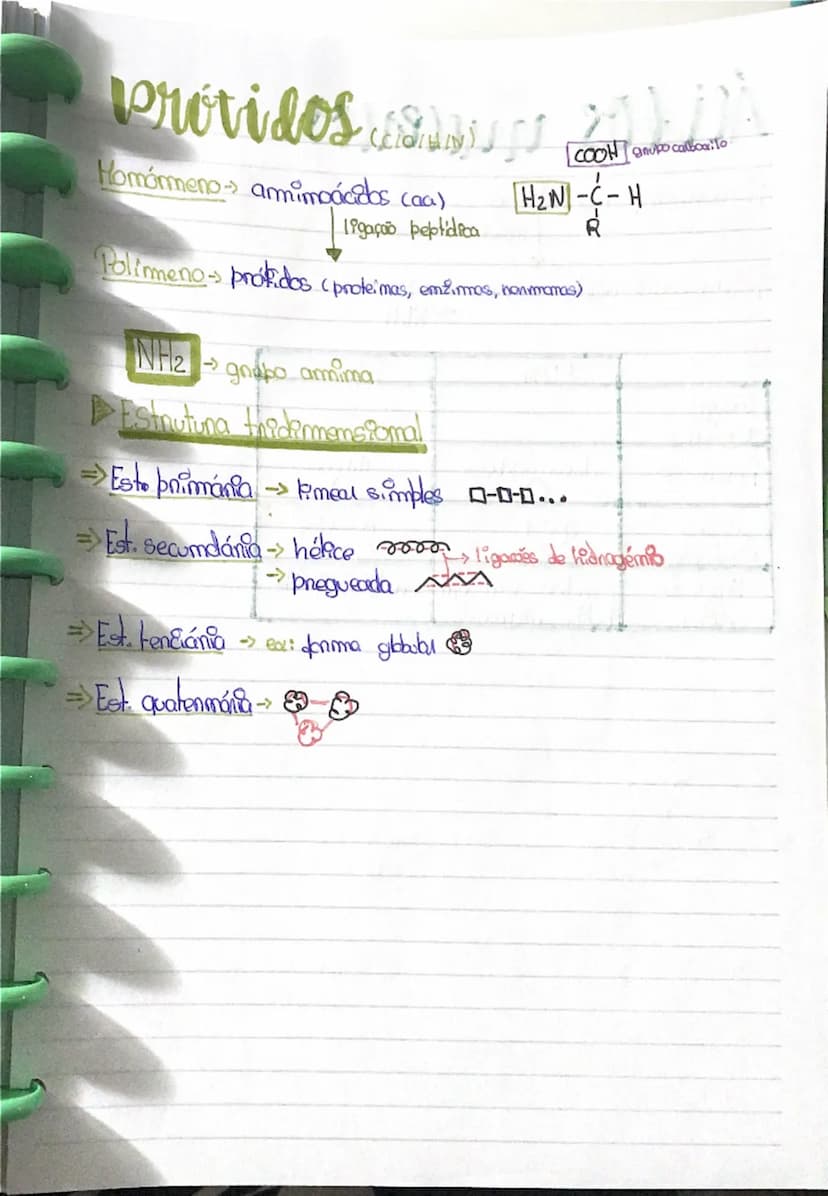 Prótidos (C/O/H/N)
COOH grupo carboxilo
Monómero → aminoácidos (aa)
H2N - C - H
R
ligação peptídica
Polímero → prótidos (proteínas, enzimas, hormonas)
NH2 → grupo amina
Estrutura tridimensional
⇒ Est. primária → linear simples □-□-□...
⇒ Est. secundária → hélice
→ ligações de hidrogénio
→ pregueada
⇒ Est. terciária → ex: forma globular
⇒ Est. quaternária →